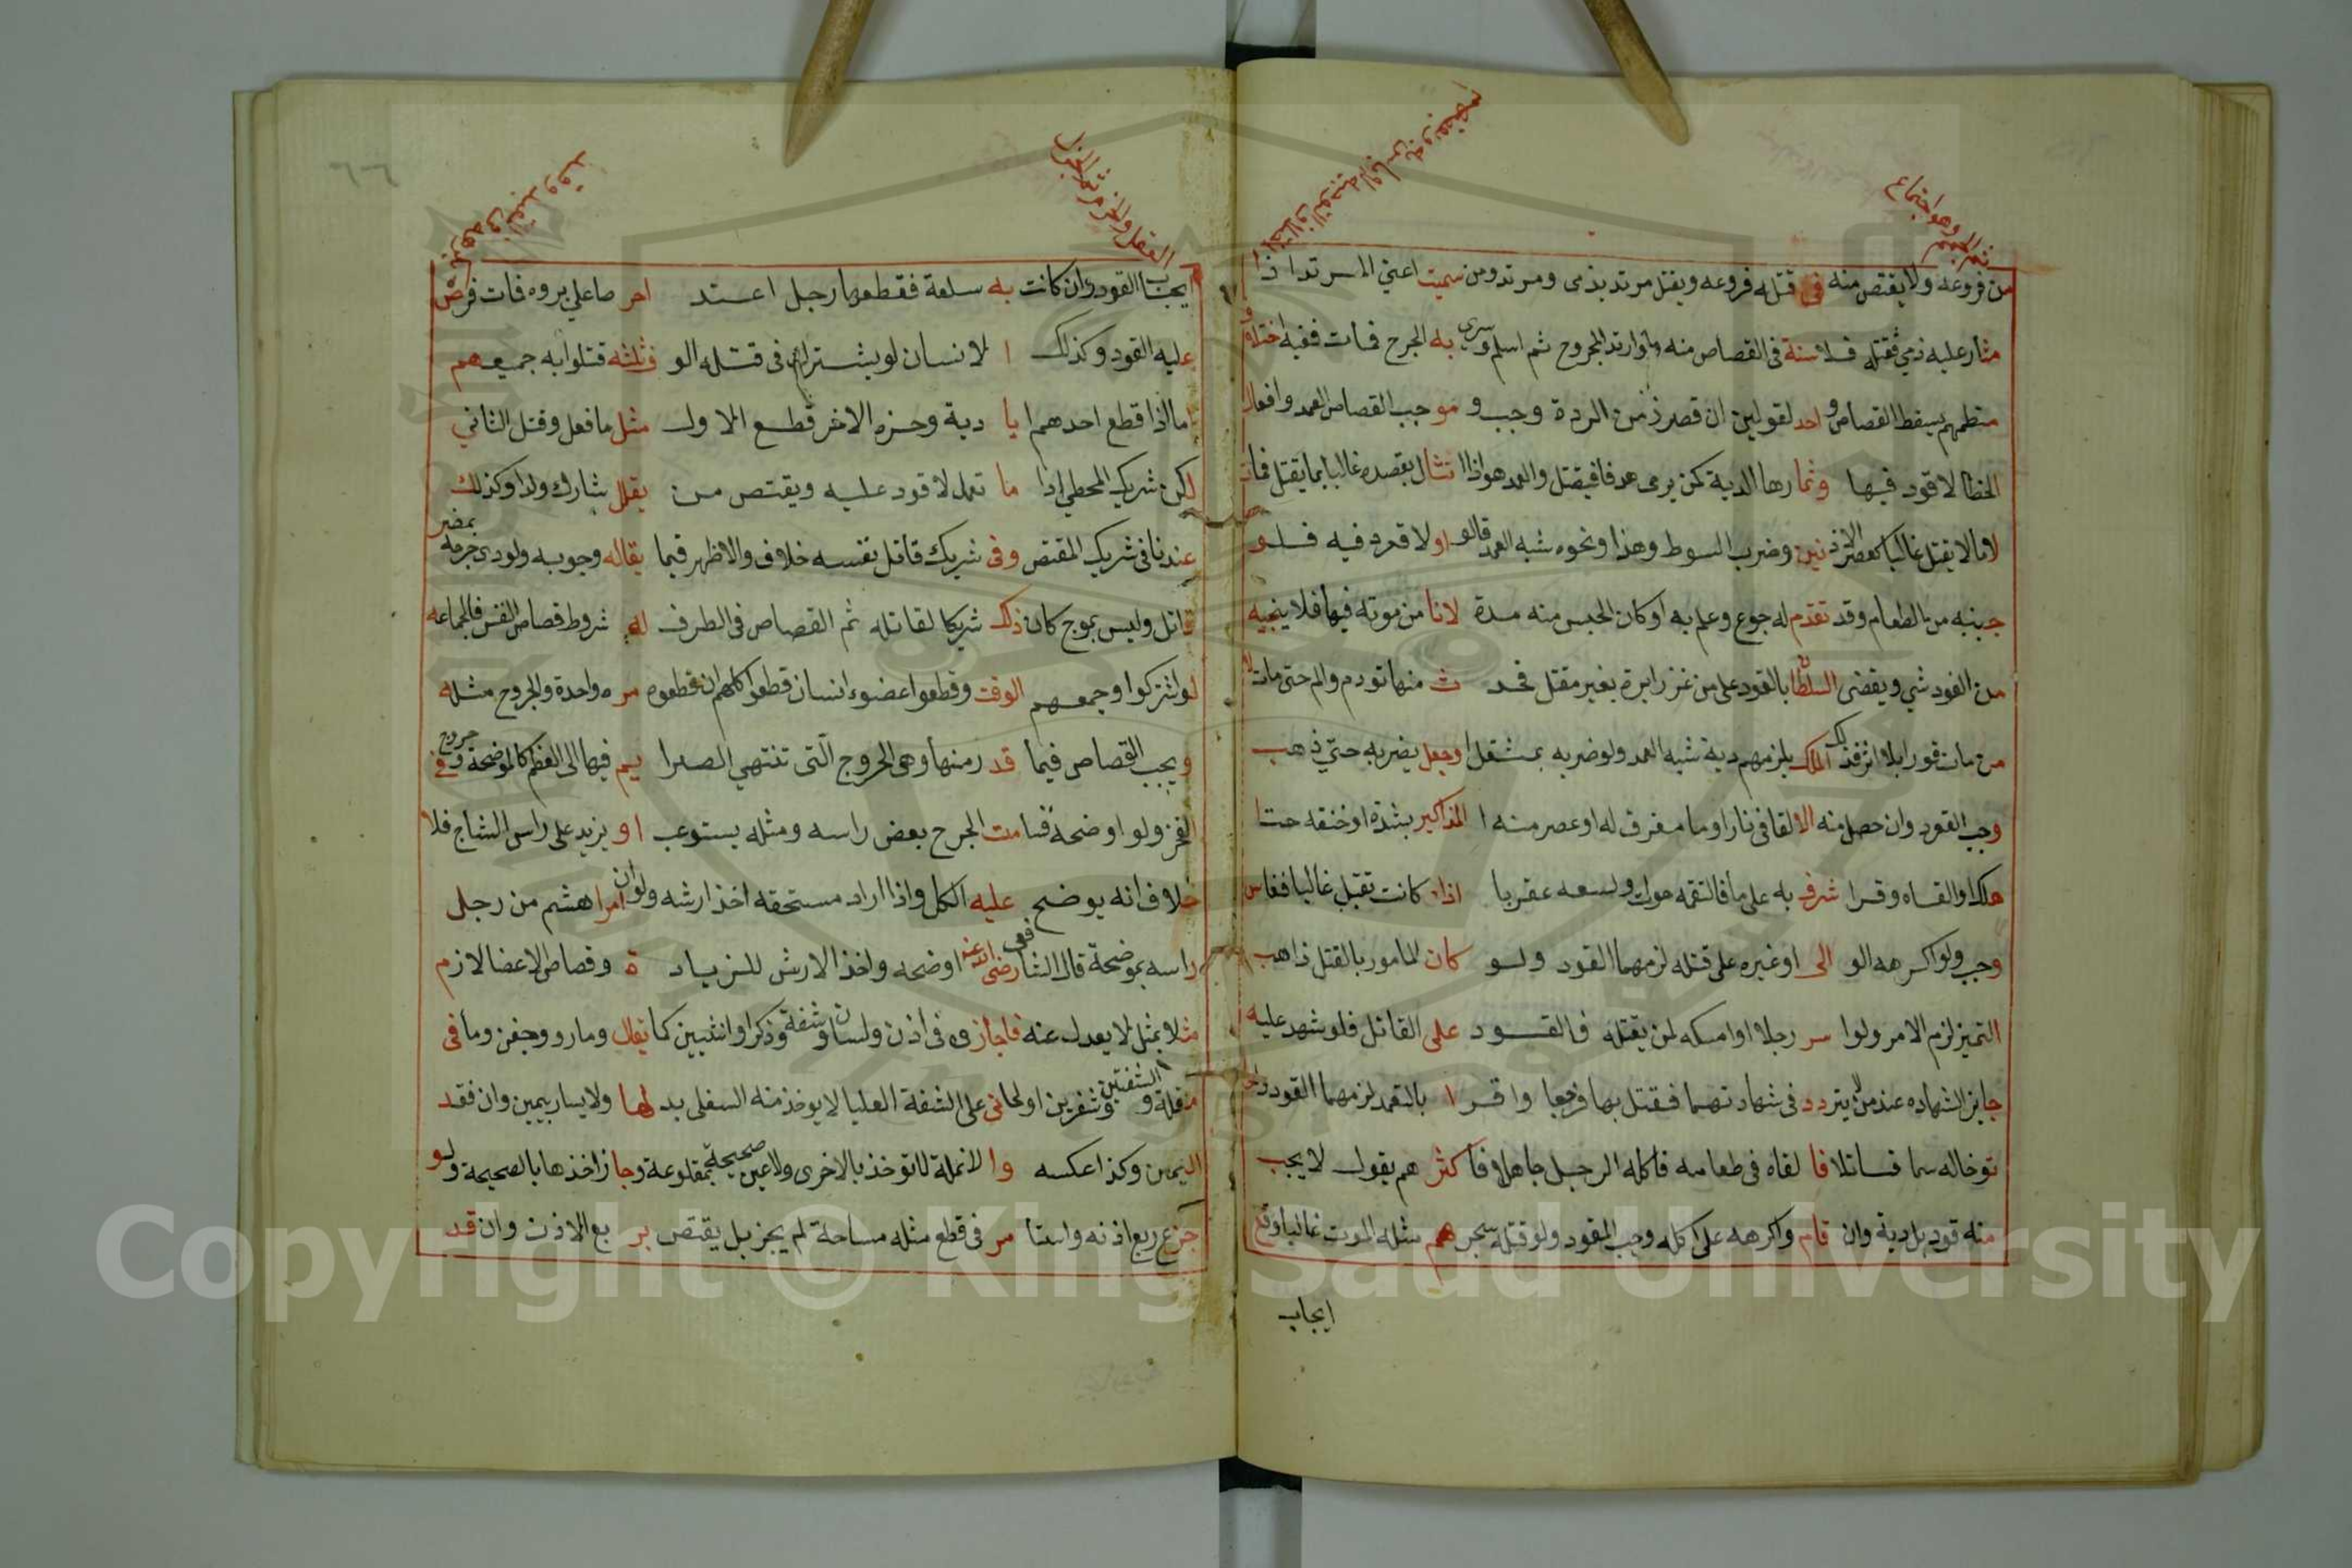 من فروعه ولا يقتص منه في قتله فروعه ويقتل مرتد بذمى ومرتد ومن سميت اعني المرتد اذا
مثار عليه ذمي فقتله فلا سنة فى القصاص منه ولو ارتد المجروح ثم اسلم وسرى به الجرح فمات ففيه اختلا
يسقط القصاص واحد لقولين ان قصر زمن الردة وجب و موجب القصاص العمد وافعال
الخطا لا قود فيها وثمارها الدية كمن يرمى هدفا فيقتل والعمد هو اذا اتثال بقصده غالبا بما يقتل فمات
لا ما لا يقتل غالبا كعصر الاذنين وضرب السوط وهذا ونحوه شبه العمد قالوا ولا قود فيه فلو
جينبه من الطعام وقد تقدم له جوع وعلم به او كان الحبس منه مدة لانا من موته فيها فلا ينجيه
من القود شي ويقضى السلطان بالقود على من غرز ابرة بغير مقتل فحد ث منها تورم والم حتى مات
من مات فورا بلا اثر فذلك المالك يلزمهم دية شبه العمد ولو ضربه بمثقل او جعل يضربه حتي ذهب
وجب القود وان حصل منه الالقا فى نار او ما مغرق له او عصر منه المذاكير بشدة او خنقه حتا
هلك او القاه وقرا شرف به على ما فالتقمه حوت ولسعه عقربا اذا كانت تقتل غالبا فقاس
وجب ولو اكرهه الو الى او غيره على قتله لزمهما القود ولو كان المامور بالقتل ذاهب
التميز لزم الامر ولوا سر رجلا او امسكه لمن يقتله فالقود على القاتل فلو شهد عليه
جايز الشهاده عند من لا يتردد فى شهادتهما فقتل بها فرجعا واقرا بالتعمد لزمهما القود
توخاله سما قاتلا فا لقاه فى طعامه فاكله الرجل جاهلا فا كثرهم يقول لا يجب
منه قود بل دية وان قام واكرهه على اكله وجب القود ولو قتله سحرهم مثله الموت غالبا وقع
ايجاب
٦٦
ايجاب القود وان كانت به سلعة فقطعها رجل اعتد احر صا على بروه فات فرض
عليه القود وكذلك ا لانسان لو يشترك فى قتله الو ف ثلثه قتلوا به جميعهم
اما اذا قطع احدهما يا دية وحزه الاخر قطع الاول مثل ما فعل وقتل الثاني
لكن شريك المخطي اذا ما تعمد لا قود عليه ويقتص من يقلل شارك ولدا وكذلك
عندنا فى شريك المقتص وفى شريك قاتل نفسه خلاف والاظهر فيما يقاله وجوبه ولودى جرحه بمضر
قاتل وليس بموج كان ذلك شريكا لقاتله ثم القصاص فى الطرف له شروط قصاص النفس فالجماعه
لو اشتركوا وجمعهم الوقت وقطعوا عضوء انسان قطعوا كلهم ان قطعوه مره واحدة والجروح مثله
ويجب القصاص فيما قد رمنها وهى الجروج التى تنتهي الصدرا يم فيها الى العظم كالموضحة وفى جروح
الفخز ولو اوضحه قنا مت الجرح بعض راسه ومثله يستوعب او يزيد على راس الشاج فلا
خلاف انه يوضح عليه الكل واذا اراد مستحقه اخذ ارشه ولو ان امرا هشم من رجل
راسه بموضحة قال الشافعى رضى الله عنه اوضحه واخذ الارش للزياد ة وقصاص الاعضا لازم
مثلا بمثل لا يعدل عنه فاجازوه فى اذن ولسان وشفة وذكر او انثيين كما يقال ومارو وجفن وما فى
مقلة والشفتين وشفرين او لحانى على الشفة العليا لا يوخذ منه السفلى بد لها ولا يسار بيمين وان فقد
اليمين وكذا عكسه وا لانملة لا توخذ بالاخرى ولا عين صحيحة بمقلوعة وجاز اخذها بالصحيحة ولو
جزع ربع اذنه واستا مر فى قطع مثله مساحة لم يجز بل يقتص بر بع الاذن وان قد